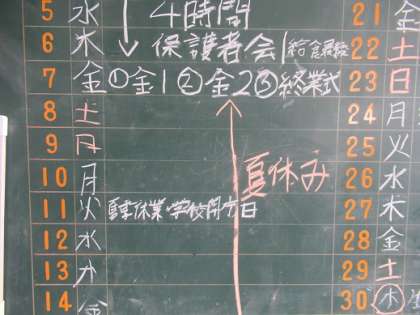 5 水 4時間 21 金
6 木 ↓ 保護者会 給食最終 22 土
7 金 ①金1②金2③終業式 23 日
8 土 24 月
9 日 25 火
10 月 夏休み 26 水
11 火 夏季休業・学校閉庁日 27 木
12 水 28 金
13 木 29 土
14 金 30